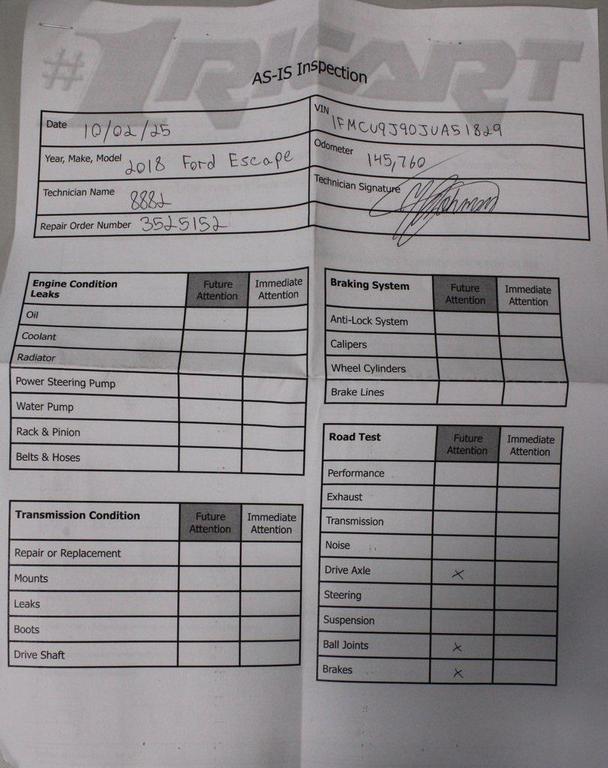 #1 RICART
AS-IS Inspection
Date 10/02/25
VIN 1FMCU9J90JUA51829
Year, Make, Model 2018 Ford Escape
Odometer 145,760
Technician Name 8882
Technician Signature
Repair Order Number 3525152
Engine Condition Future Immediate
Leaks Attention Attention
Oil
Coolant
Radiator
Power Steering Pump
Water Pump
Rack & Pinion
Belts & Hoses
Braking System Future Immediate
Attention Attention
Anti-Lock System
Calipers
Wheel Cylinders
Brake Lines
Transmission Condition Future Immediate
Attention Attention
Repair or Replacement
Mounts
Leaks
Boots
Drive Shaft
Road Test Future Immediate
Attention Attention
Performance
Exhaust
Transmission
Noise
Drive Axle X
Steering
Suspension
Ball Joints X
Brakes X